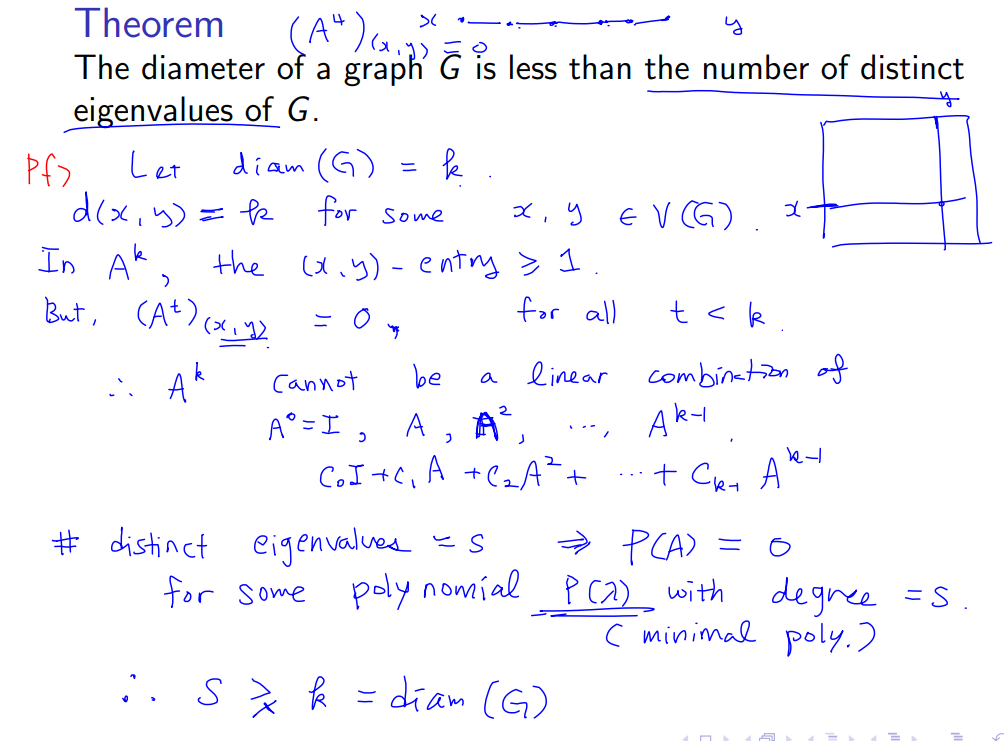 Theorem (A⁴)₍ₓ,ᵧ₎ = 0 x y
The diameter of a graph G is less than the number of distinct
eigenvalues of G.
y
Pf> Let diam(G) = k.
d(x,y) = k for some x, y ∈ V(G). x
In Aᵏ, the (x,y)-entry ≥ 1.
But, (Aᵗ)₍ₓ,ᵧ₎ = 0, for all t < k.
∴ Aᵏ cannot be a linear combination of
A⁰ = I, A, A², ⋯, Aᵏ⁻¹.
C₀I + C₁A + C₂A² + ⋯ + Cₖ₋₁ Aᵏ⁻¹
# distinct eigenvalues = s ⇒ P(A) = 0
for some polynomial P(λ) with degree = s.
(minimal poly.)
∴ s ≩ k = diam(G)